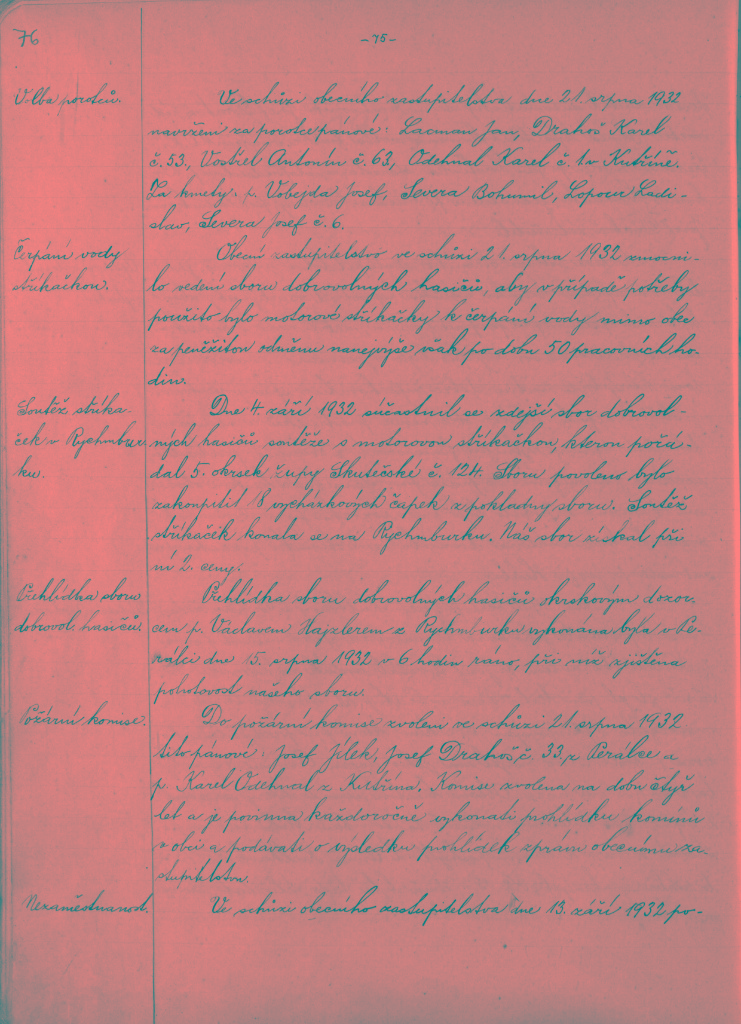 76
-75-
Volba porotců.
Ve schůzi obecního zastupitelstva dne 21. srpna 1932
navrženi za porotce pánové: Lacman Jan, Drahoš Karel
č. 53., Vostřel Antonín č. 63, Odehnal Karel č. 1. v Kutříně.
Za kmety: p. Vobejda Josef, Severa Bohumil, Lopour Ladi-
slav, Severa Josef č. 6.
Čerpání vody
stříkačkou.
Obecní zastupitelstvo ve schůzi 21. srpna 1932 zmocni-
lo vedení sboru dobrovolných hasičů, aby v případě potřeby
použito bylo motorové stříkačky k čerpání vody mimo obec
za peněžitou odměnu nanejvýše však po dobu 50 pracovních ho-
din.
Soutěž stříka-
ček v Rychmbur-
ku.
Dne 4. září 1932 súčastnil se zdejší sbor dobrovol-
ných hasičů soutěže s motorovou stříkačkou, kterou pořá-
dal 5. okrsek župy Skutečské č. 124. Sboru povoleno bylo
zakoupiti 8 vycházkových čapek z pokladny sboru. Soutěž
stříkaček konala se na Rychmburku. Náš sbor získal při
ní 2. ceny.
Přehlídka sboru
dobrovol. hasičů.
Přehlídka sboru dobrovolných hasičů okrskovým dozor-
cem p. Václavem Hajzlerem z Rychmburku vykonána byla v Pe-
rálci dne 15. srpna 1932 v 6 hodin ráno, při níž zjištěna
pohotovost našeho sboru.
Požární komise.
Do požární komise zvoleni ve schůzi 21. srpna 1932
tito pánové: Josef Jílek, Josef Drahoš, č. 33, z Perálce a
p. Karel Odehnal z Kutřína. Komise zvolena na dobu čtyř
let a je povinna každoročně vykonati prohlídku komínů
v obci a podávati o výsledku prohlídek zprávu obecnímu za-
stupitelstvu.
Nezaměstnanost.
Ve schůzi obecního zastupitelstva dne 13. září 1932 po-